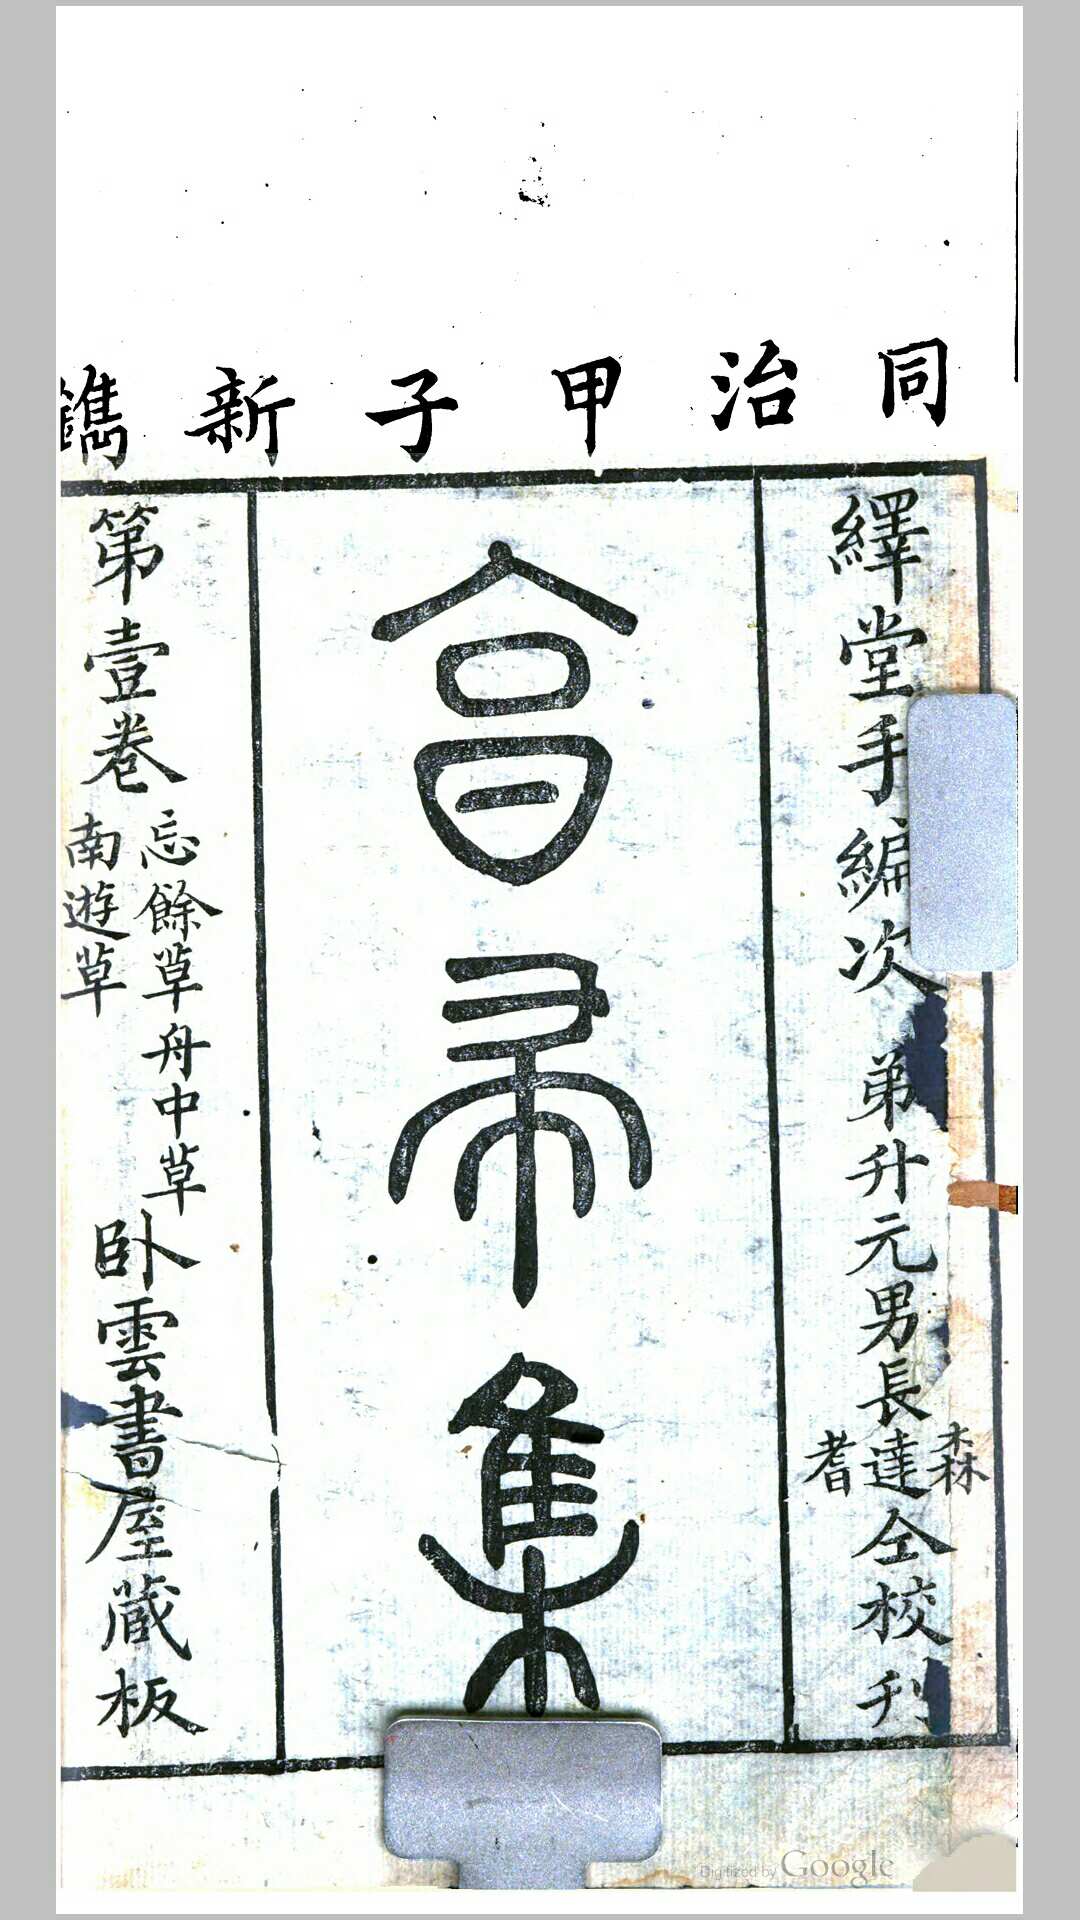 同治甲子新鐫
繹堂手編次 弟升元男長森達耆仝校刊
亯帚集
第壹卷 忘餘草舟中草
南遊草
卧雲書屋藏板
Digitized by Google